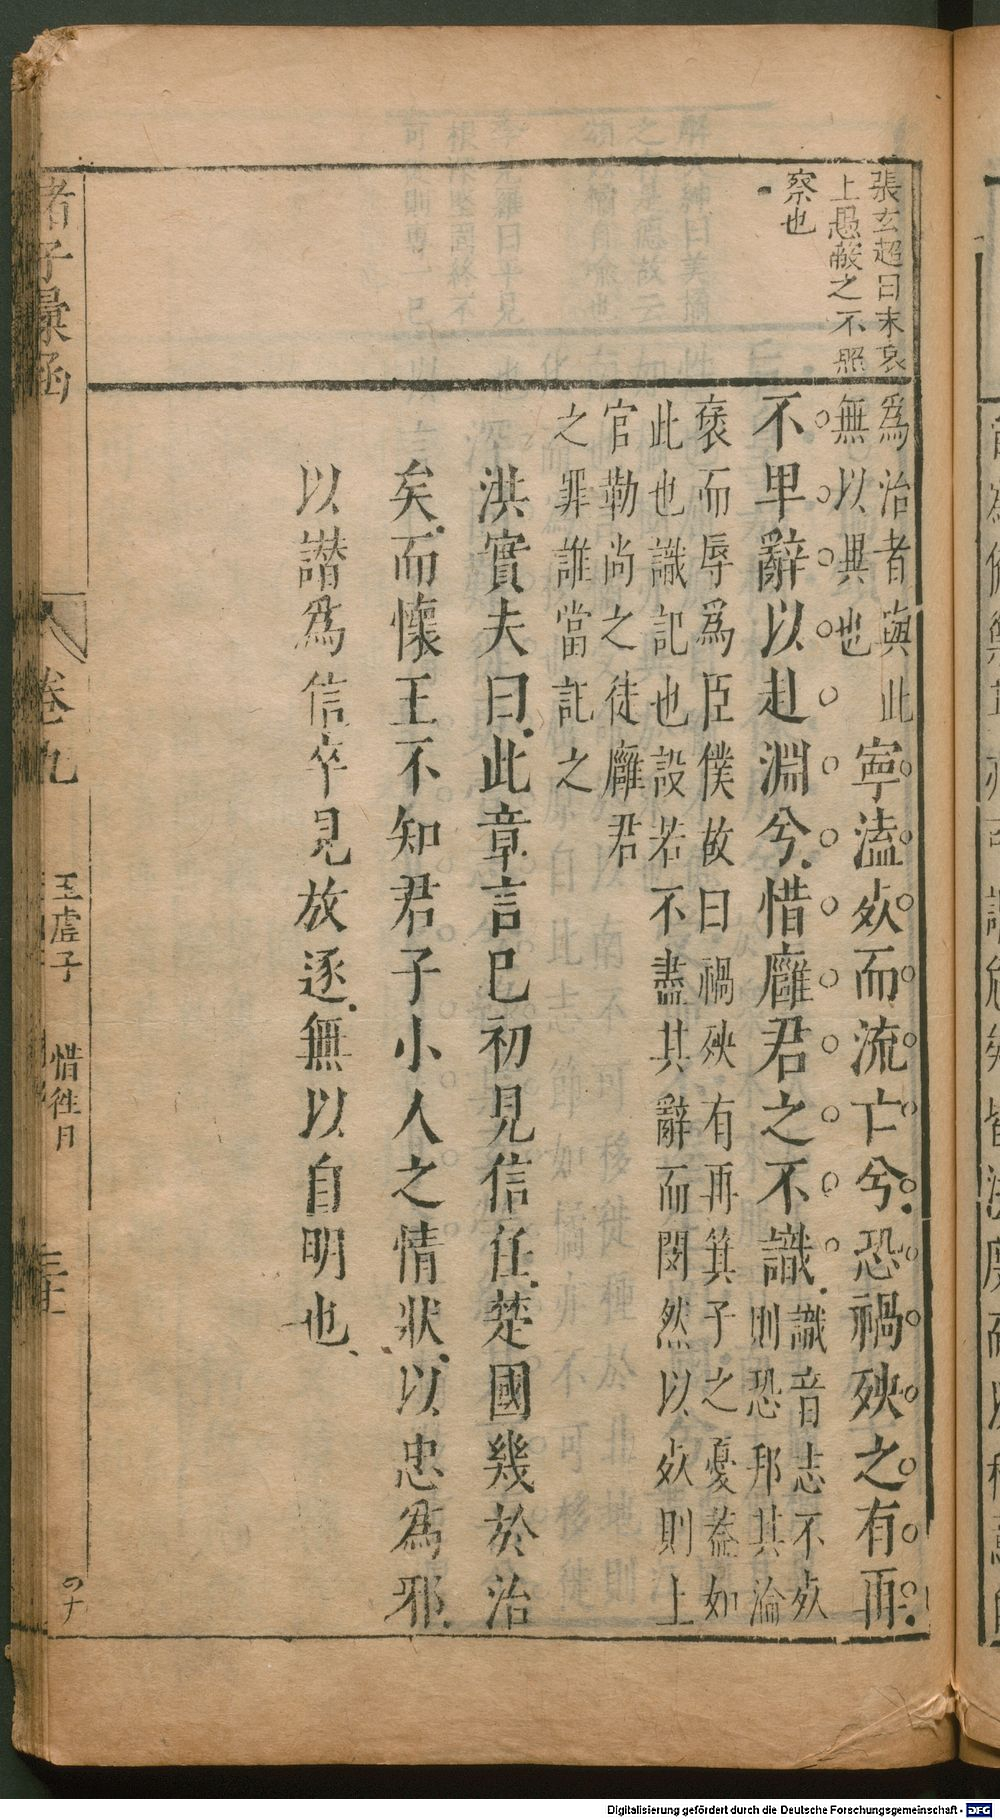 張玄超曰末哀
上愚蔽之不照
察也
為治者與此
無以異也
寧溘死而流亡兮恐禍殃之有再
不畢辭以赴淵兮惜廱君之不識
識音志不死
則恐邦其淪
喪而辱為臣僕故曰禍殃有再箕子之憂蓋如
此也識記也設若不盡其辭而閔然以死則上
官勒尚之徒廱君
之罪誰當記之
洪實夫曰此章言已初見信任楚國幾於治
矣而懷王不知君子小人之情狀以忠為邪
以譖為信卒見放逐無以自明也
諸子彙函
卷九
玉虛子
惜徃日
四十
Digitalisierung gefördert durch die Deutsche Forschungsgemeinschaft - DFG